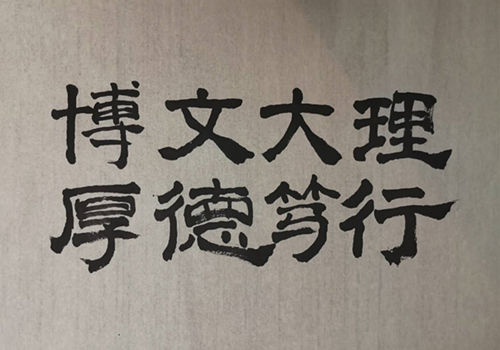 博文大理
厚德笃行